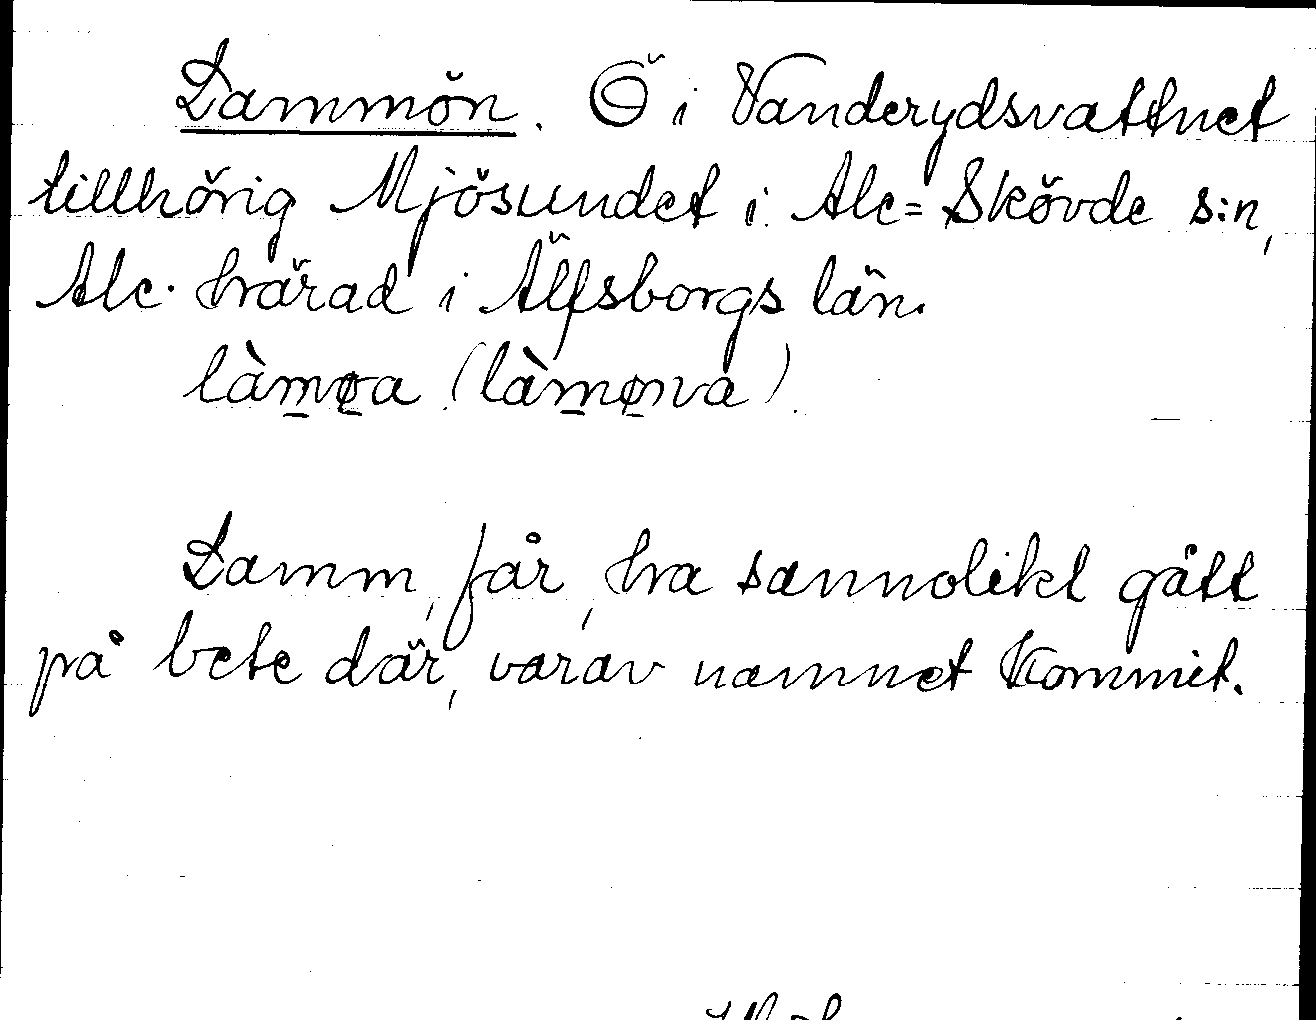 Lammön. Ö i Vanderydsvattnet
tillhörig Mjösundet i Ale-Skövde s:n,
Ale härad i Älfsborgs län.
làmøa (làmøna)
Lamm, får, ha sannolikt gått
på bete där, varav namnet kommit.